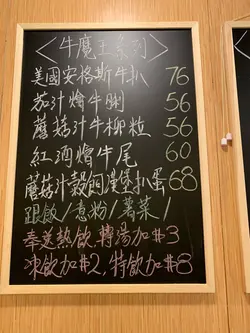 <牛魔王系列>
美國安格斯牛扒 76
茄汁燴牛脷 56
蘑菇汁牛柳粒 56
紅酒燴牛尾 60
蘑菇汁穀飼漢堡扒蛋 68
跟飯/意粉/薯菜/
奉送熱飲,轉湯加$3
凍飲加$2,特飲加$8